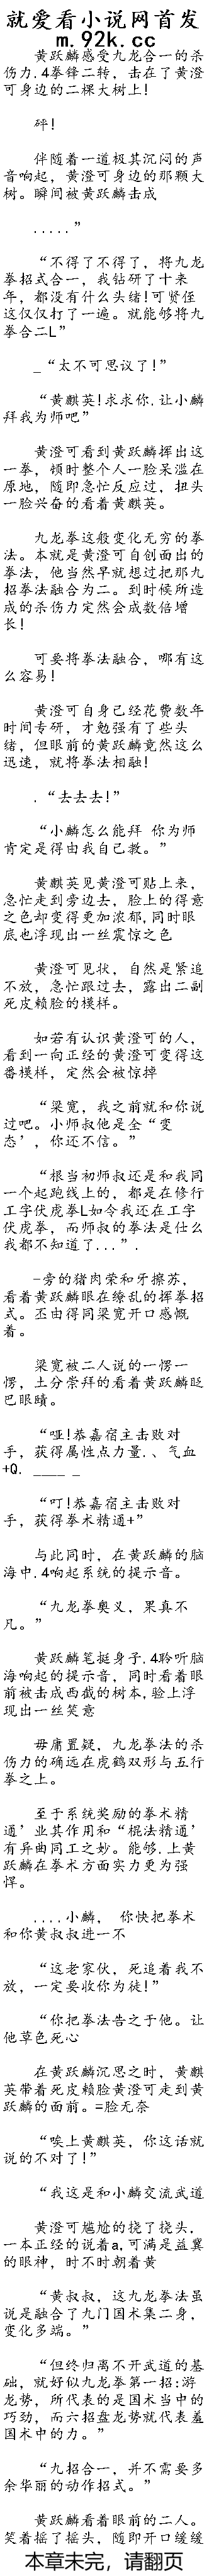 就爱看小说网首发
m.92k.cc
黄跃麟感受九龙合一的杀
伤力.4拳锋二转，击在了黄澄
可身边的二棵大树上!
砰!
伴随着一道极其沉闷的声
音响起，黄澄可身边的那颗大
树。瞬间被黄跃麟击成
.....”
“不得了不得了，将九龙
拳招式合一，我钻研了十来
年，都没有什么头绪!可贤侄
这仅仅打了一遍。就能够将九
拳合二L”
_“太不可思议了!”
“黄麒英!求求你.让小麟
拜我为师吧”
黄澄可看到黄跃麟挥出这
一拳，顿时整个人一脸呆滥在
原地，随即急忙反应过，扭头
一脸兴奋的看着黄麒英。
九龙拳这般变化无穷的拳
法。本就是黄澄可自创面出的
拳法，他当然早就想过把那九
招拳法融合为二。到时候所造
成的杀伤力定然会成数倍增
长!
可要将拳法融合，哪有这
么容易!
黄澄可自身己经花费数年
时间专研，才勉强有了些头
绪，但眼前的黄跃麟竟然这么
迅速，就将拳法相融!
.“去去去!”
“小麟怎么能拜 你为师
肯定是得由我自己教。”
黄麒英见黄澄可贴上来，
急忙走到旁边去，脸上的得意
之色却变得更加浓郁,同时眼
底也浮现出一丝震惊之色
黄澄可见状，自然是紧追
不放，急忙跟过去，露出二副
死皮赖脸的模样。
如若有认识黄澄可的人，
看到一向正经的黄澄可变得这
番模样，定然会被惊掉
“梁宽，我之前就和你说
过吧。小师叔他是全“变
态’，你还不信。”
“根当初师叔还是和我同
一个起跑线上的，都是在修行
工字伏虎拳L如令我还在工字
伏虎拳，而师叔的拳法是仕么
我都不知道了...”.
-旁的猪肉荣和牙擦苏，
看着黄跃麟眼在缭乱的挥拳招
式。丕由得同梁宽开口感慨
着。
梁宽被二人说的一愣一
愣，土分崇拜的看着黄跃麟眨
巴眼睛。
“哑!恭嘉宿主击败对
手，获得属性点力量.、气血
+Q. ____ _
“叮!恭嘉宿主击败对
手，获得拳术精通+”
与此同时，在黄跃麟的脑
海中.4响起系统的提示音。
“九龙拳奥义，果真不
凡。”
黄跃麟笔挺身子.4聆听脑
海响起的提示音，同时看着眼
前被击成西截的树本,验上浮
现出一丝笑意
毋庸置疑，九龙拳法的杀
伤力的确远在虎鹤双形与五行
拳之上。
至于系统奖励的拳术精
通’业其作用和“棍法精通’
有异曲同工之妙。能够.上黄
跃麟在拳术方面实力更为强
悍。
....小麟， 你快把拳术
和你黄叔叔进一不
“这老家伙，死追着我不
放，一定要收你为徒!”
“你把拳法告之于他。让
他草色死心
在黄跃麟沉思之时，黄麒
英带着死皮赖脸黄澄可走到黄
跃麟的面前。=脸无奈
“唉上黄麒英，你这话就
说的不对了!”
“我这是和小麟交流武道
黄澄可尴尬的挠了挠头.
一本正经的说着a,可满是益冀
的眼神，时不时朝着黄
“黄叔叔，这九龙拳法虽
说是融合了九门国术集二身，
变化多端。”
“但终归离不开武道的基
础，就好似九龙拳第一招:游
龙势，所代表的是国术当中的
巧劲，而六招盘龙势就代表羞
国术中的力。”
“九招合一，并不需要多
余华丽的动作招式。”
黄跃麟看着眼前的二人。
笑着摇了摇头，随即开口缓缓
本章未完，请翻页